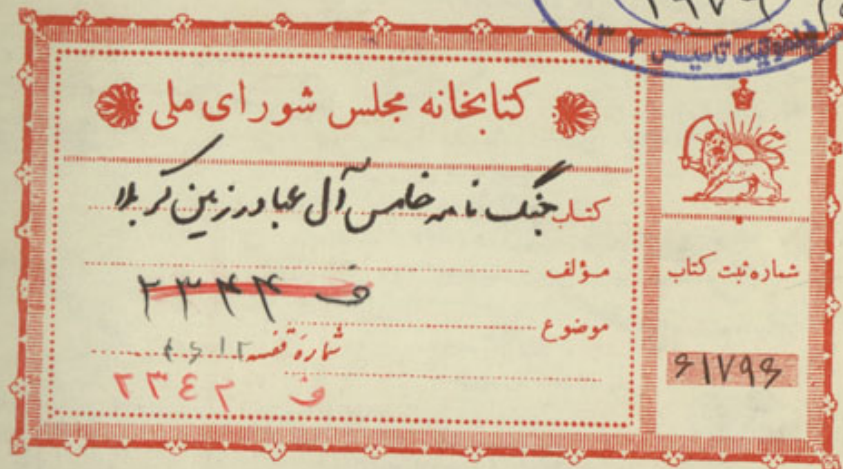 کتابخانه مجلس شورای ملی
کتاب جنگ نامه خامس آل عبا در زمین کربلا
مؤلف
ف ۲۳۴۴
موضوع
شماره قفسه
ف ۲۳۴۲
شماره ثبت کتاب
۶۱۷۹۶
تاسیس ۱۳۰۲